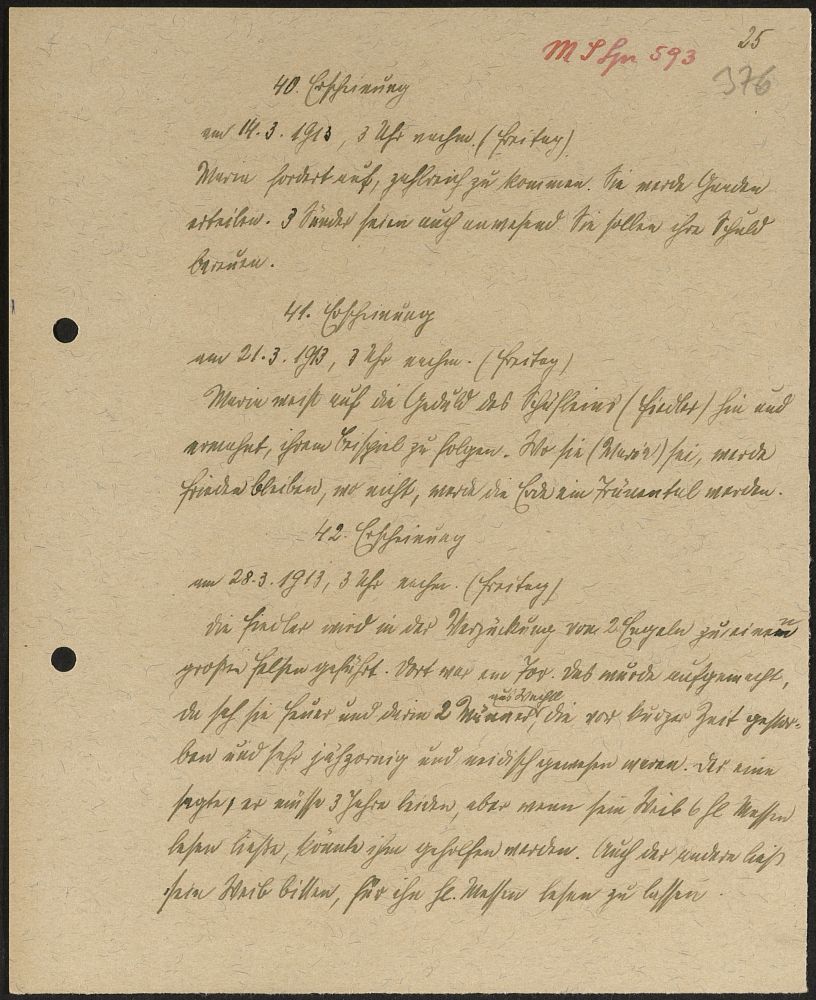 25
376
40. Erscheinung
am 14.3.1913, 3 Uhr nachm. (Freitag)
Maria fordert auf, zahlreich zu kommen. Sie werde Gnaden
erteilen. 3 Sünder seien auch anwesend Sie sollen ihre Schuld
bereuen.
41. Erscheinung
am 21.3.1913, 3 Uhr nachm. (Freitag)
Maria weist auf die Geduld des Schäfleins (Fiedler) hin und
ermahnt, ihrem Beispiel zu folgen. Wo sie (Maria) sei, werde
Frieden bleiben, wo nicht, werde die Erde ein Tränental werden.
42. Erscheinung
am 28.3.1913, 3 Uhr nachm. (Freitag)
Die Fiedler wird in der Verzückung von 2 Engeln zu einem
großen Felsen geführt. Dort war ein Tor. Das wurde aufgemacht,
da sah sie Feuer und darin 2 Männer, die vor kurzer Zeit gestor-
ben und sehr jähzornig und neidisch gewesen waren. Der eine
sagte, er müsse 3 Jahre leiden, aber wenn sein Weib 6 hl. Messen
lesen ließe, könnte ihm geholfen werden. Auch der andere ließ
sein Weib bitten, für ihn hl. Messen lesen zu lassen.